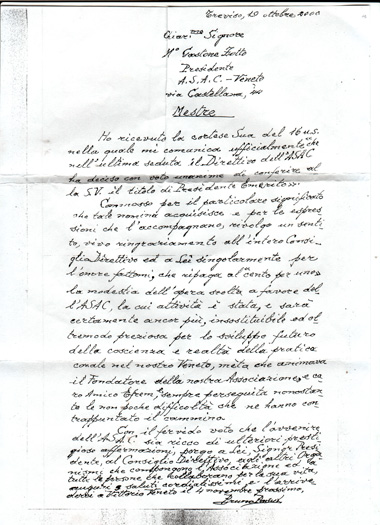 Treviso, 19 ottobre, 2000
Chiar.mo Signore
M° Gastone Zotto
Presidente
A.S.A.C. - Veneto
via Castellana,
Mestre
Ho ricevuto la cortese Sua del 16 u.s.
nella quale mi comunica ufficialmente che
nell'ultima seduta il Direttivo dell'ASAC
ha deciso con voto unanime di conferire al
la S.V. il titolo di Presidente Emerito.
Commosso per il particolare significato
che tale nomina acquisisce e per le espres
sioni che l'accompagnano, rivolgo un senti
to, vivo ringraziamento all'intero Consi_
glio Direttivo ed a Lei singolarmente per
l'onore fattomi, che ripaga al cento per uno
la modestia dell'opera svolta a favore del
l'ASAC, la cui attività è stata, e sarà
certamente ancor più, insostituibile ed ol
tremodo preziosa per lo sviluppo futuro
della coscienza e realtà della pratica
corale nel nostro Veneto, meta che animava
il Fondatore della nostra Associazione, e ca
ro Amico Efrem, sempre perseguita nonostan
te le non poche difficoltà che ne hanno con
trappuntato il cammino.
Con il fervido voto che l'avvenire
dell'A.S.A.C. sia ricco di ulteriori presti
giose affermazioni, porgo a Lei, Signor Presi
dente, al Consiglio Direttivo, agli altri Orga
nismi che compongono l'Associazione ed a
tutte le persone che collaborano per la sua vita,
auguri e saluti cordialissimi e l'arrive
derci a Vittorio Veneto il 4 novembre prossimo,
Bruno